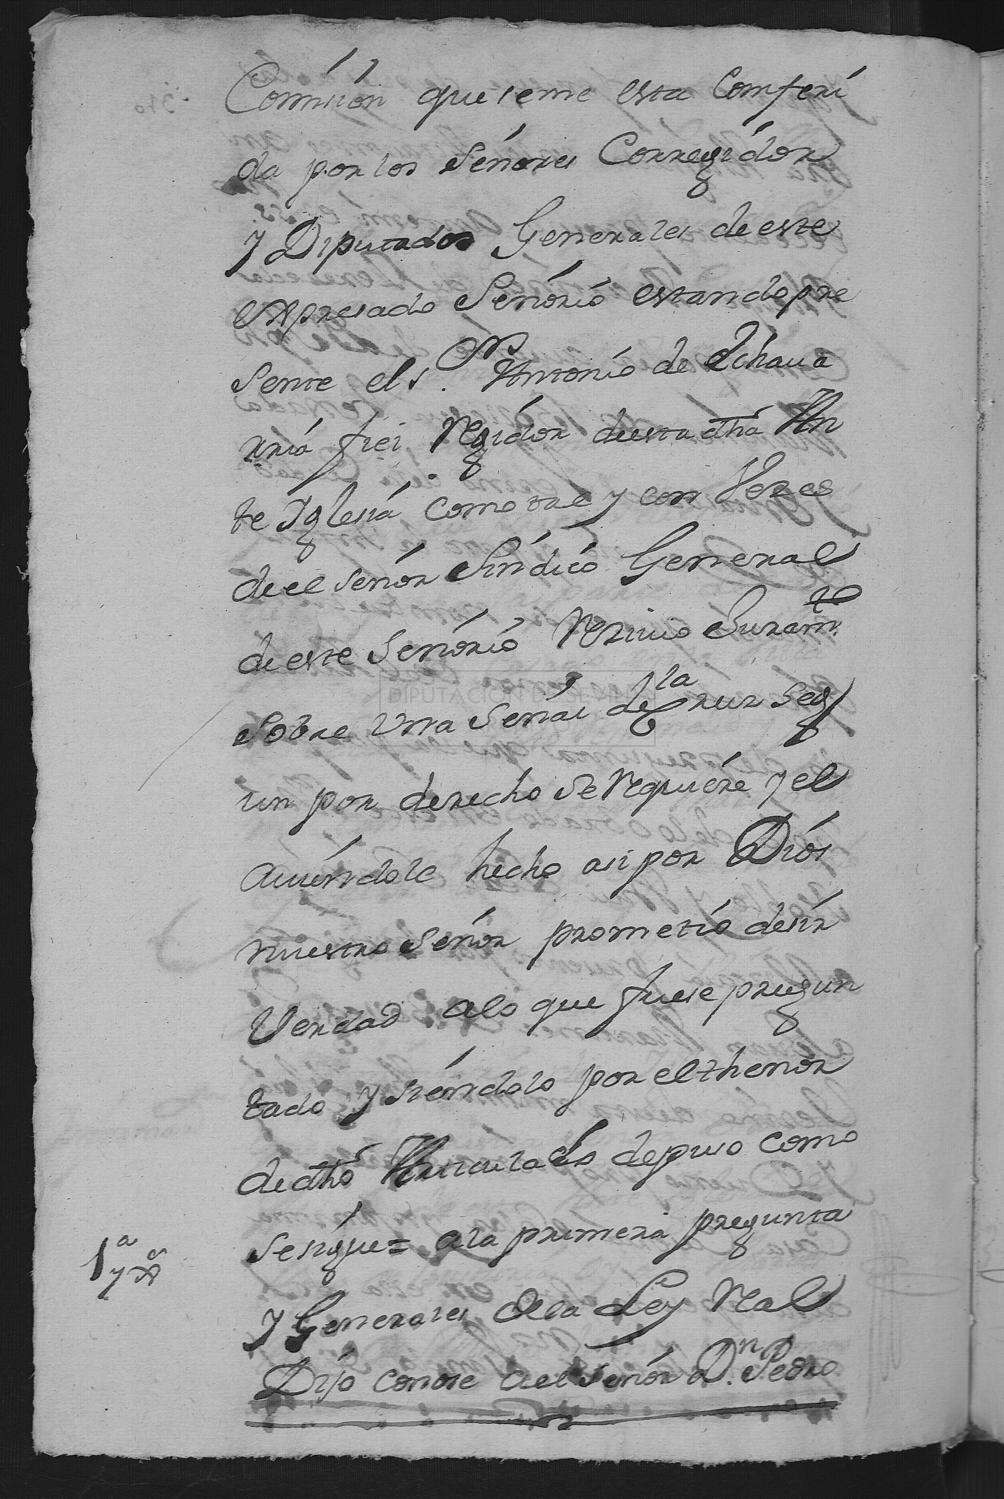 Comision que se me esta Comferi
da por los Señores Corregidor
y Diputados Generales de este
expresado Señorio estando pre
sente el s.or Antonio de Echava
rria fiel Regidor de esta dha An
te Yglesia como tal y con Vezes
de el señor Sindico General
de este Señorio Reciui Juram.to
sobre una Señal de la Cruz seg
un por derecho se requiere y el
auiendole hecho asi por Dios
nuestro Señor prometio desir
Verdad alo que fuese pregun
tado y siendolo por el thenor
de dho Articulado depuso como
se sigue = ala primera pregunta
1a y Gs
y Generales de la Ley Real
Dijo conose a el señor Dn. Pedro
DIPUTACIÓN